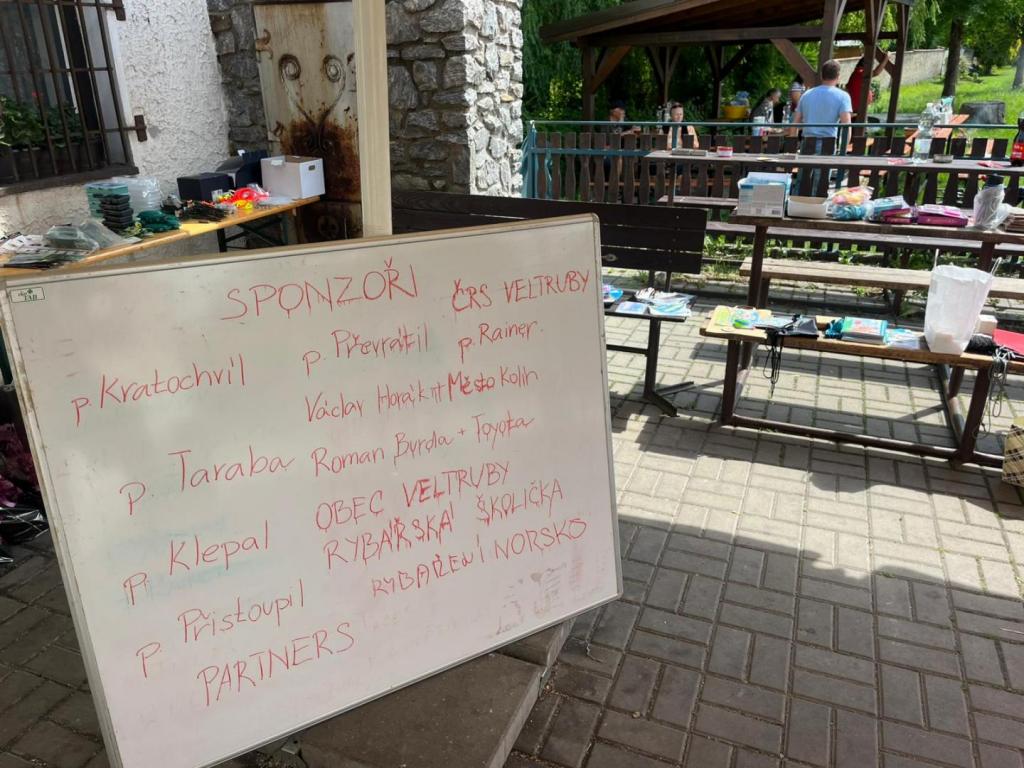 SPONZOŘI
ČRS VELTRUBY
p. Kratochvíl
p. Převrátil
p. Rainer.
Václav Horák ml Město Kolín
p. Taraba
Roman Byrda + Toyota
OBEC VELTRUBY
p. Klepal
RYBÁŘSKÁ ŠKOLIČKA
RYBAŘENÍ NORSKO
p. Přistoupil
PARTNERS